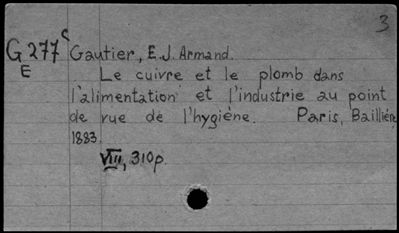 3
G277c Gautier, E.J. Armand.
E
Le cuivre et le plomb dans
l'alimentation et l'industrie au point
de vue de l'hygiène. Paris, Baillière,
1883.
VIII, 310p.